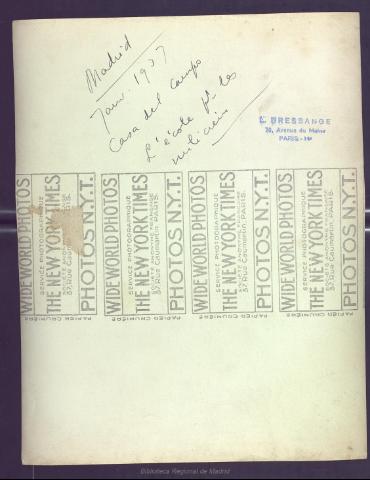 Madrid
Janv. 1937
Casa del campo
L'école pr les
miliciens
L. BRESSANGE
20, Avenue du Maine
PARIS-14e
WIDE WORLD PHOTOS
SERVICE PHOTOGRAPHIQUE
THE NEW YORK TIMES
SOCIÉTÉ ANONYME FRANÇAISE
37, Rue Caumartin, PARIS.
PHOTOS N.Y.T.
PAPIER CRUMIÈRE
WIDE WORLD PHOTOS
SERVICE PHOTOGRAPHIQUE
THE NEW YORK TIMES
SOCIÉTÉ ANONYME FRANÇAISE
37, Rue Caumartin, PARIS.
PHOTOS N.Y.T.
PAPIER CRUMIÈRE
WIDE WORLD PHOTOS
SERVICE PHOTOGRAPHIQUE
THE NEW YORK TIMES
SOCIÉTÉ ANONYME FRANÇAISE
37, Rue Caumartin, PARIS.
PHOTOS N.Y.T.
PAPIER CRUMIÈRE
WIDE WORLD PHOTOS
SERVICE PHOTOGRAPHIQUE
THE NEW YORK TIMES
SOCIÉTÉ ANONYME FRANÇAISE
37, Rue Caumartin, PARIS.
PHOTOS N.Y.T.
PAPIER CRUMIÈRE
Biblioteca Regional de Madrid